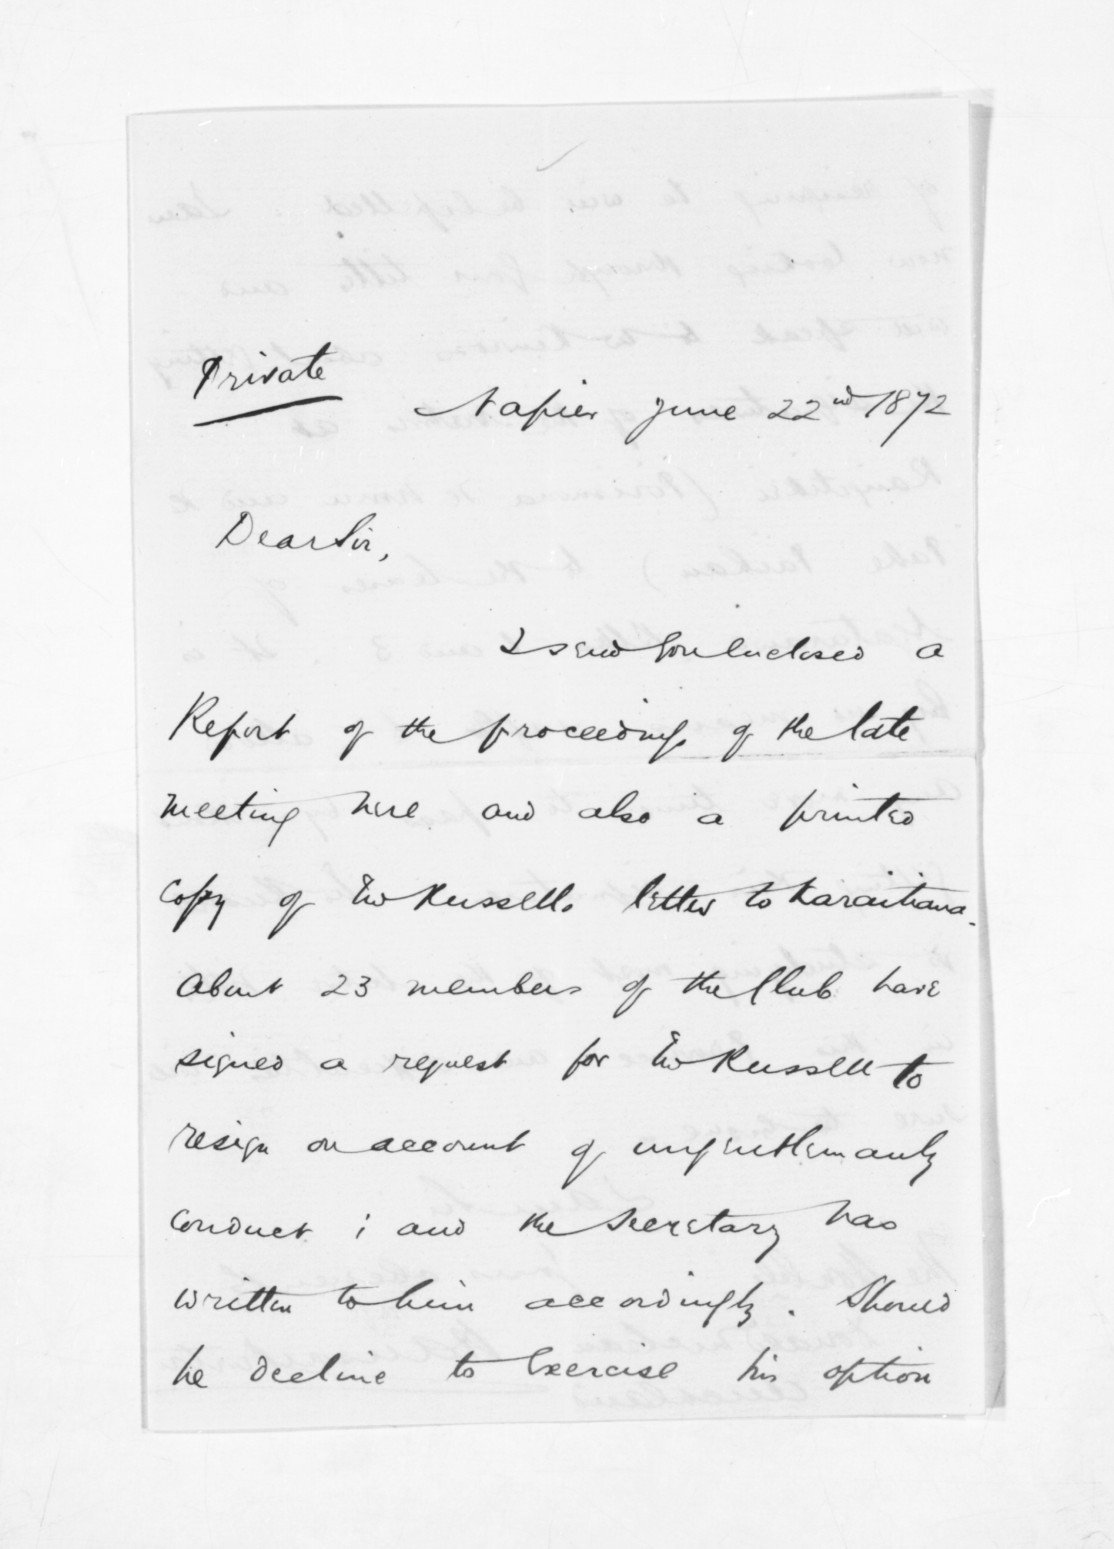 Private
Napier June 22nd 1872
Dear Sir,
I send you Enclosed a
Report of the proceedings of the late
meeting here and also a printed
Copy of Russells letter to Karaitiana.
About 23 members of the Club have
signed a request for Russell to
resign on account of ungentlemanly
conduct ; and the Secretary has
written to him accordingly. Should
he decline to Exercise his option